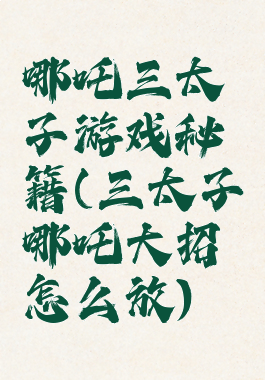 哪吒三太
子游戏秘
籍(三太子
哪吒大招
怎么放)